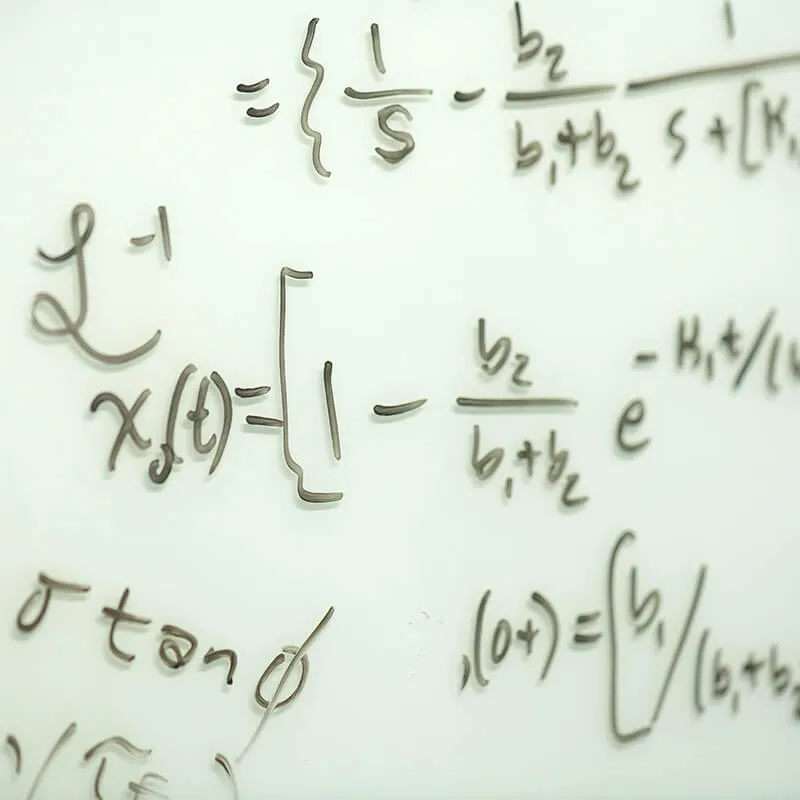 = { 1/S - b₂/(b₁+b₂) 1/(S+[K₁
ℒ⁻¹
x₀(t) = [ 1 - b₂/(b₁+b₂) e^(-K₁t/(
σ tan φ
(0+) = [b₁/(b₁+b₂